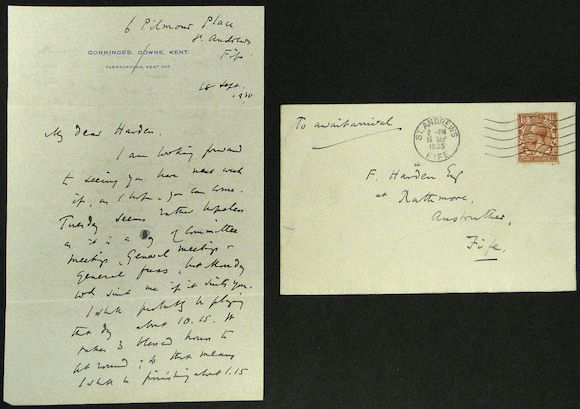 6 Pilmour Place
St. Andrews
Fife
GORRINGES, DOWNE, KENT.
FARNBOROUGH, KENT
15 Sept.
1935
My dear Harden.
I am looking forward
to seeing you here next week
if, as I hope, you can come.
Tuesday seems rather hopeless
as it is a day of Committee
meetings, General meetings &
General fuss, but Monday
wd. suit me if it suits you.
I shall probably be playing
that day about 10.15. It
takes 3 blessed hours to
get round, so that means
I shall be finishing about 1.15
To await arrival
ST. ANDREWS
2 - PM
15 SEP
1935
FIFE
F. Harden Esq
at Rathmore,
Anstruther,
Fife.